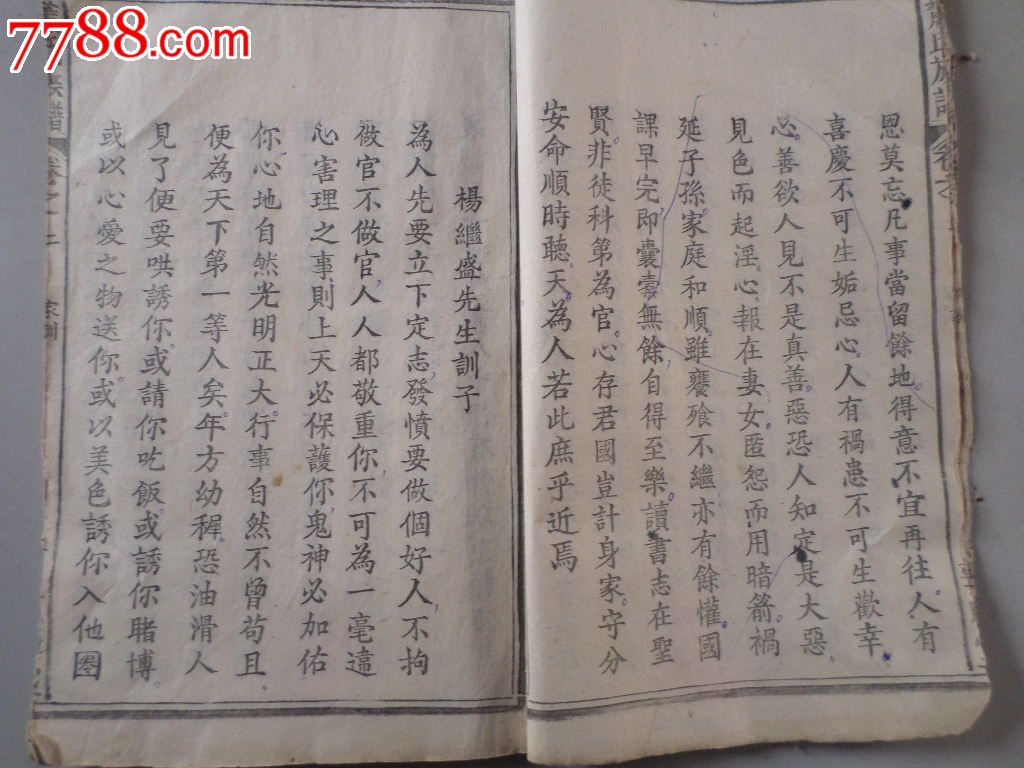 7788.com
恩莫忘凡事當留餘地得意不宜再往人有
喜慶不可生妬忌心人有禍患不可生歡幸
心善欲人見不是真善惡恐人知定是大惡
見色而起淫心報在妻女匿怨而用暗箭禍
延子孫家庭和順雖饔飧不繼亦有餘懽國
課早完即囊橐無餘自得至樂讀書志在聖
賢非徒科第為官心存君國豈計身家守分
安命順時聽天為人若此庶乎近焉
楊繼盛先生訓子
為人先要立下定志發憤要做個好人不拘
做官不做官人人都敬重你不可為一毫違
心害理之事則上天必保護你鬼神必加佑
你心地自然光明正大行事自然不曾苟且
便為天下第一等人矣年方幼穉恐油滑人
見了便要哄誘你或請你吃飯或誘你賭博
或以心愛之物送你或以美色誘你入他圈
家訓